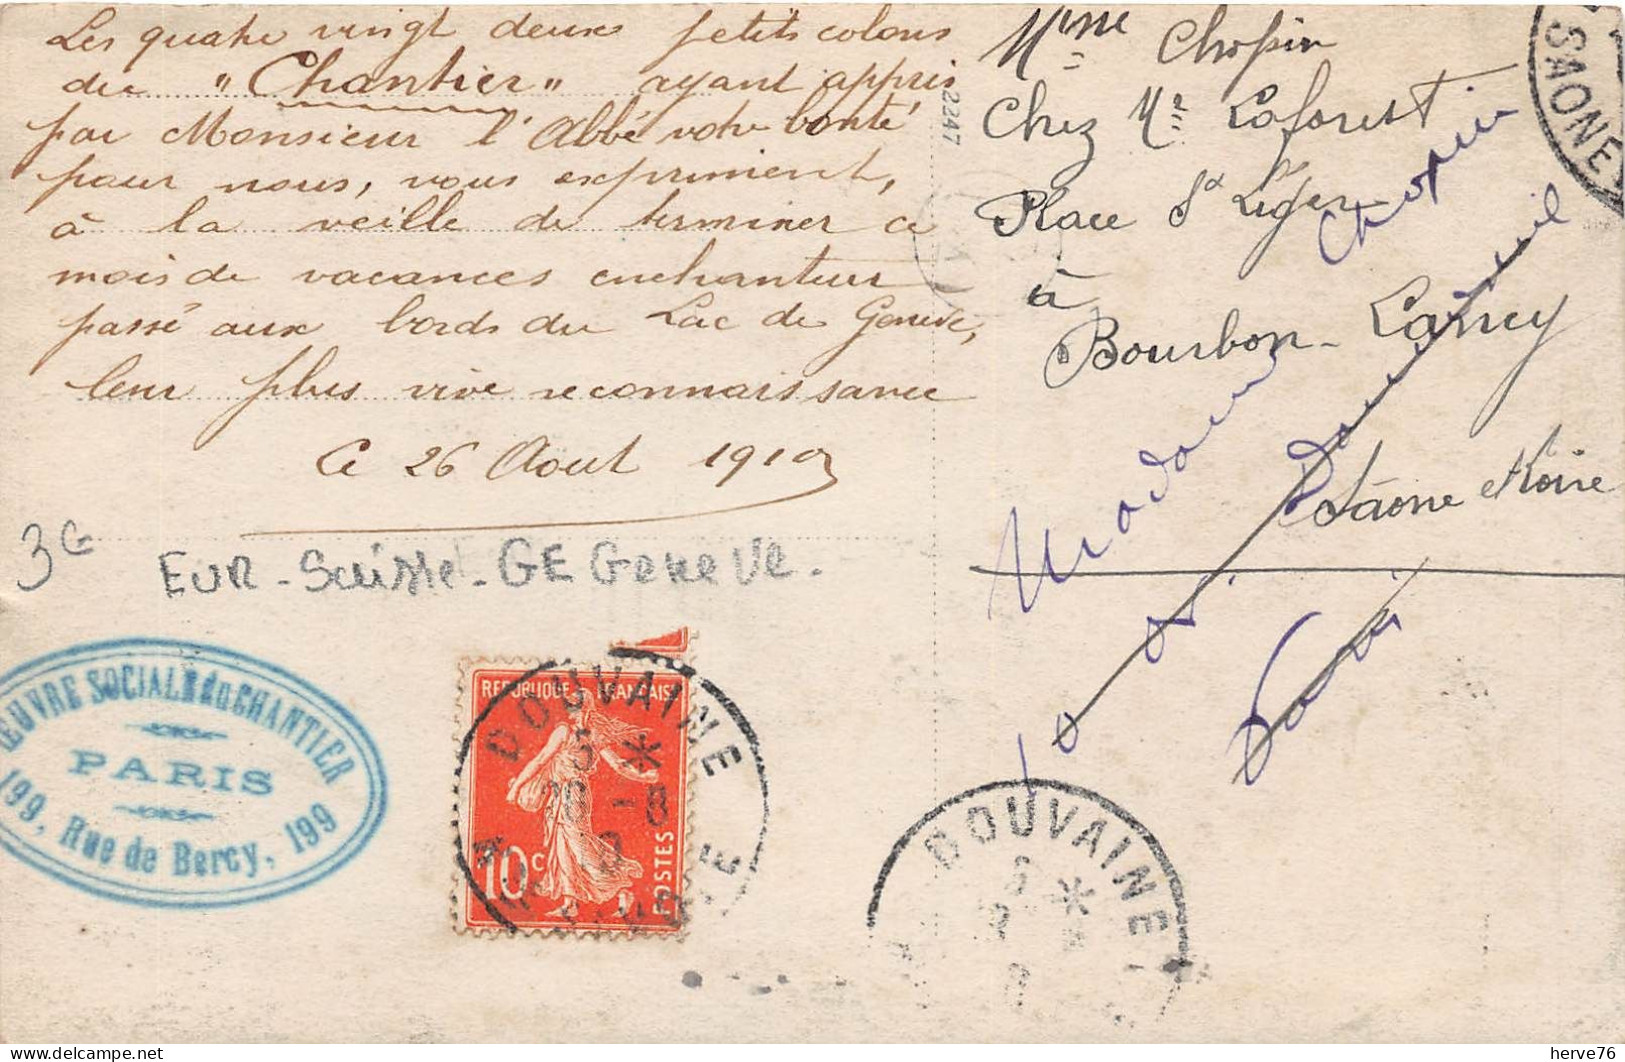 Les quatre vingt deux petits colons
du "Chantier" ayant appris
par Monsieur l'Abbé votre bonté
pour nous, vous expriment,
à la veille de terminer ce
mois de vacances enchanteur
passé aux bords du Lac de Genève,
leur plus vive reconnaissance
Ce 26 Août 1910
3€
EUR - Suisse - GE Geneve.
ŒUVRE SOCIALE du CHANTIER
PARIS
199, Rue de Bercy, 199
REPUBLIQUE FRANÇAISE
10c
POSTES
DOUVAINE
5 *
26 -8
10
HTE SAVOIE
2247
Mme Chopin
Chez Mr Laforest
Place St Léger
à
Bourbon-Lancy
Saône et Loire
Madame Chopin
Paris
SAONE
DOUVAINE
herve76